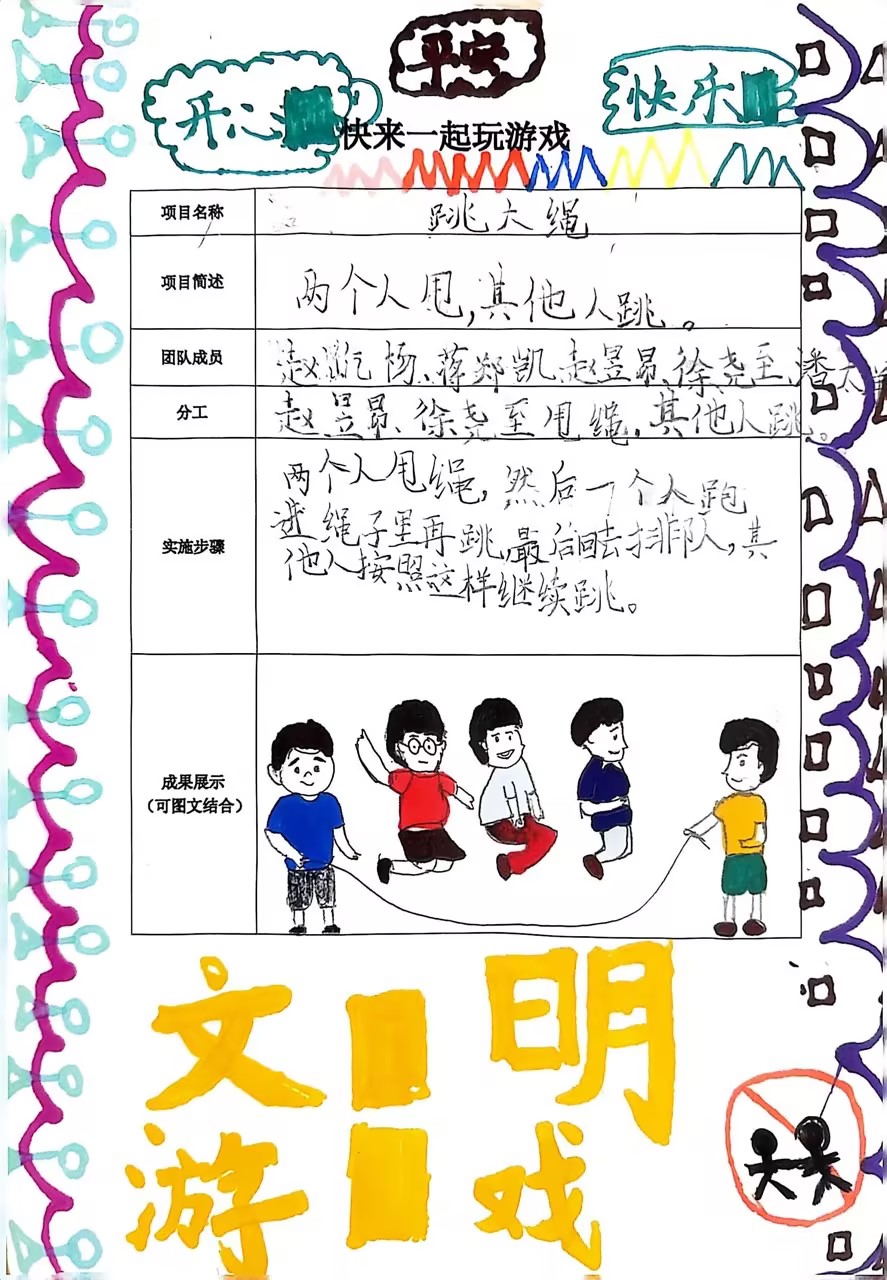 平安
开心
快乐
快来一起玩游戏
项目名称
跳大绳
项目简述
两个人甩,其他人跳。
团队成员
赵 杨、蒋郑凯、赵昱昂、徐尧至、潘
分工
赵昱昂、徐尧至甩绳,其他人跳。
实施步骤
两个人甩绳,然后一个人跑
进绳子里再跳,最后回去排队,其
他人按照这样继续跳。
成果展示
(可图文结合)
文明
游戏